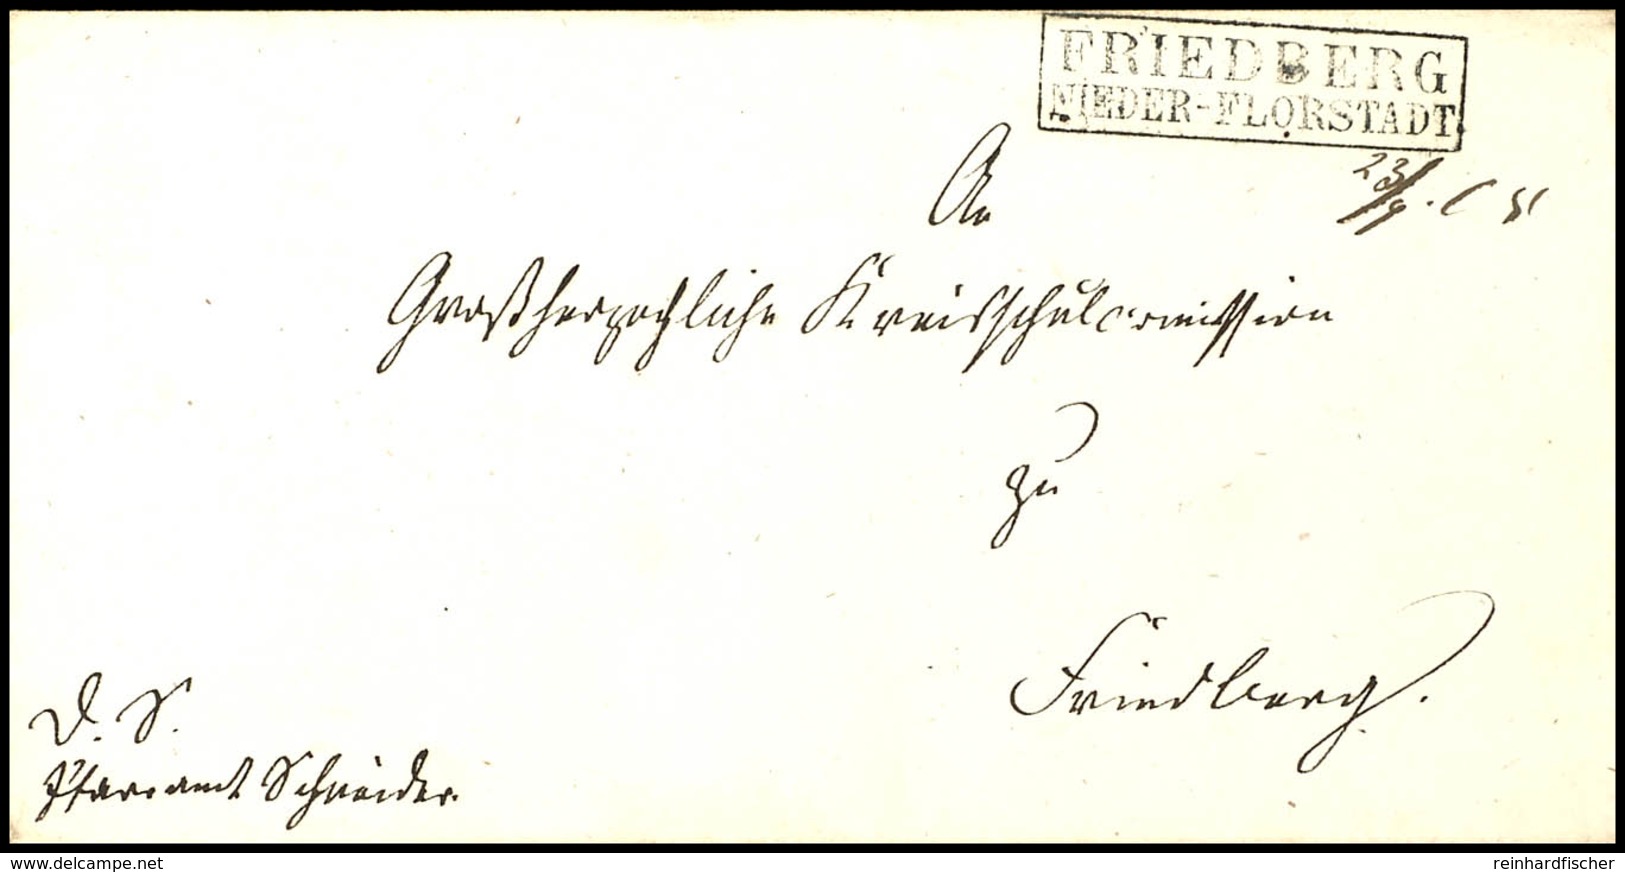 FRIEDBERG
NIEDER-FLORSTADT.
23/9.
An
Großherzogliche Kreisschulcommission
zu
Friedberg.
D. S.
Pfarramt Schneider.
www.delcampe.net
reinhardfischer